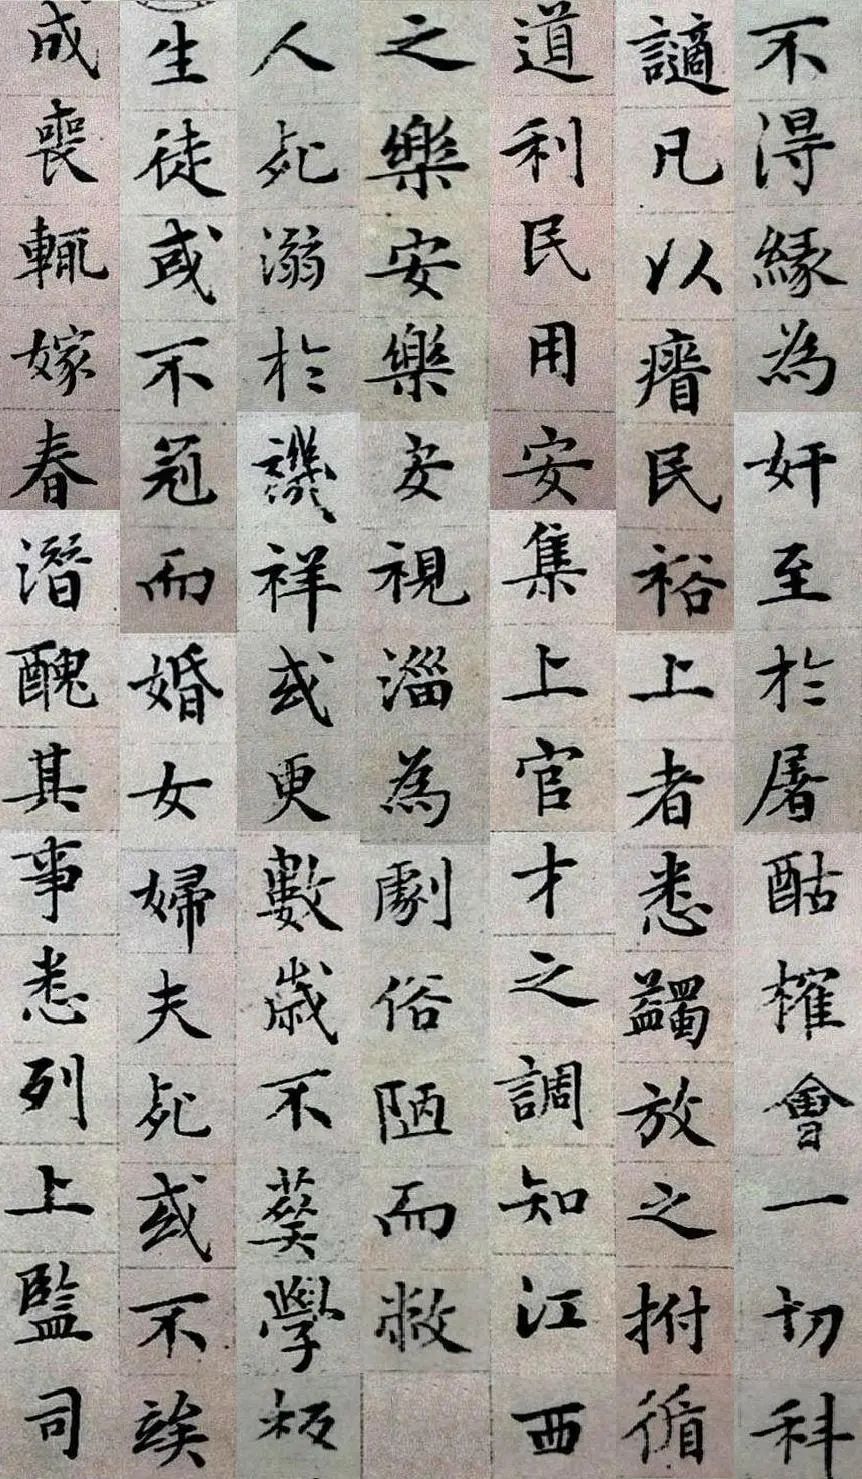 不得緣為奸至於屠酤榷會一切科
讁凡以瘠民裕上者悉蠲放之拊循
道利民用安集上官才之調知江西
之樂安樂安視淄為劇俗陋而敝
人死溺於譏祥或更數歲不葬學校
生徒或不冠而婚女婦夫死或不竢
成喪輒嫁春潛醜其事悉列上監司